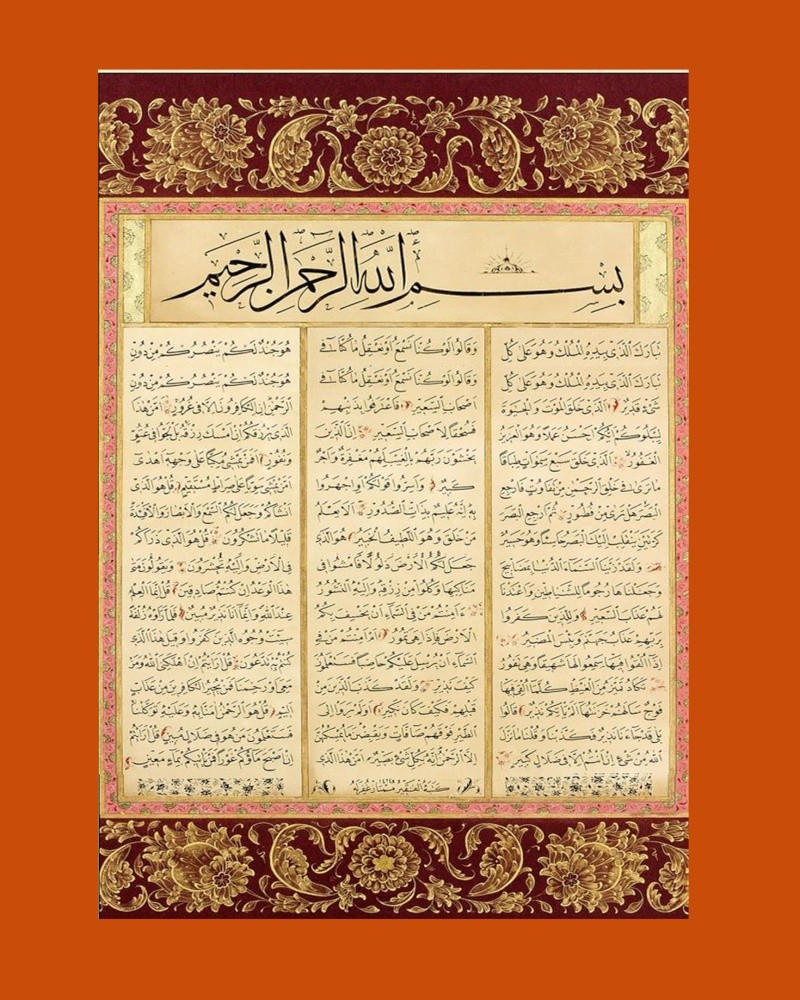 بسم الله الرحمن الرحيم
تبارك الذي بيده الملك وهو على كل
تبارك الذي بيده الملك وهو على كل
شيء قدير الذي خلق الموت والحيوة
ليبلوكم ايكم احسن عملا وهو العزيز
الغفور الذي خلق سبع سموات طباقا
ما ترى في خلق الرحمن من تفاوت فارجع
البصر هل ترى من فطور ثم ارجع البصر
كرتين ينقلب اليك البصر خاسئا وهو حسير
ولقد زينا السماء الدنيا بمصابيح
وجعلناها رجوما للشياطين واعتدنا
لهم عذاب السعير وللذين كفروا
بربهم عذاب جهنم وبئس المصير
اذا القوا فيها سمعوا لها شهيقا وهي تفور
تكاد تميز من الغيظ كلما القي فيها
فوج سالهم خزنتها الم ياتكم نذير قالوا
بلى قد جاءنا نذير فكذبنا وقلنا ما نزل
الله من شيء ان انتم الا في ضلال كبير
وقالوا لو كنا نسمع او نعقل ما كنا في
وقالوا لو كنا نسمع او نعقل ما كنا في
اصحاب السعير فاعترفوا بذنبهم
فسحقا لاصحاب السعير ان الذين
يخشون ربهم بالغيب لهم مغفرة واجر
كبير واسروا قولكم او اجهروا
به انه عليم بذات الصدور الا يعلم
من خلق وهو اللطيف الخبير هو الذي
جعل لكم الارض ذلولا فامشوا في
مناكبها وكلوا من رزقه واليه النشور
ءامنتم من في السماء ان يخسف بكم
الارض فاذا هي تمور ام امنتم من في
السماء ان يرسل عليكم حاصبا فستعلمون
كيف نذير ولقد كذب الذين من
قبلهم فكيف كان نكير اولم يروا الى
الطير فوقهم صافات ويقبضن ما يمسكهن
الا الرحمن انه بكل شيء بصير امن هذا الذي
كتبه الفقير غفر له
هو جند لكم ينصركم من دون
هو جند لكم ينصركم من دون
الرحمن ان الكافرون الا في غرور امن هذا
الذي يرزقكم ان امسك رزقه بل لجوا في عتو
ونفور افمن يمشي مكبا على وجهه اهدى
امن يمشي سويا على صراط مستقيم قل هو الذي
انشاكم وجعل لكم السمع والابصار والافئدة
قليلا ما تشكرون قل هو الذي ذراكم
في الارض واليه تحشرون ويقولون متى
هذا الوعد ان كنتم صادقين قل انما العلم
عند الله وانما انا نذير مبين فلما راوه زلفة
سيئت وجوه الذين كفروا وقيل هذا الذي
كنتم به تدعون قل ارايتم ان اهلكني الله ومن
معي او رحمنا فمن يجير الكافرين من عذاب
اليم قل هو الرحمن امنا به وعليه توكلنا
فستعلمون من هو في ضلال مبين قل ارايتم
ان اصبح ماؤكم غورا فمن ياتيكم بماء معين